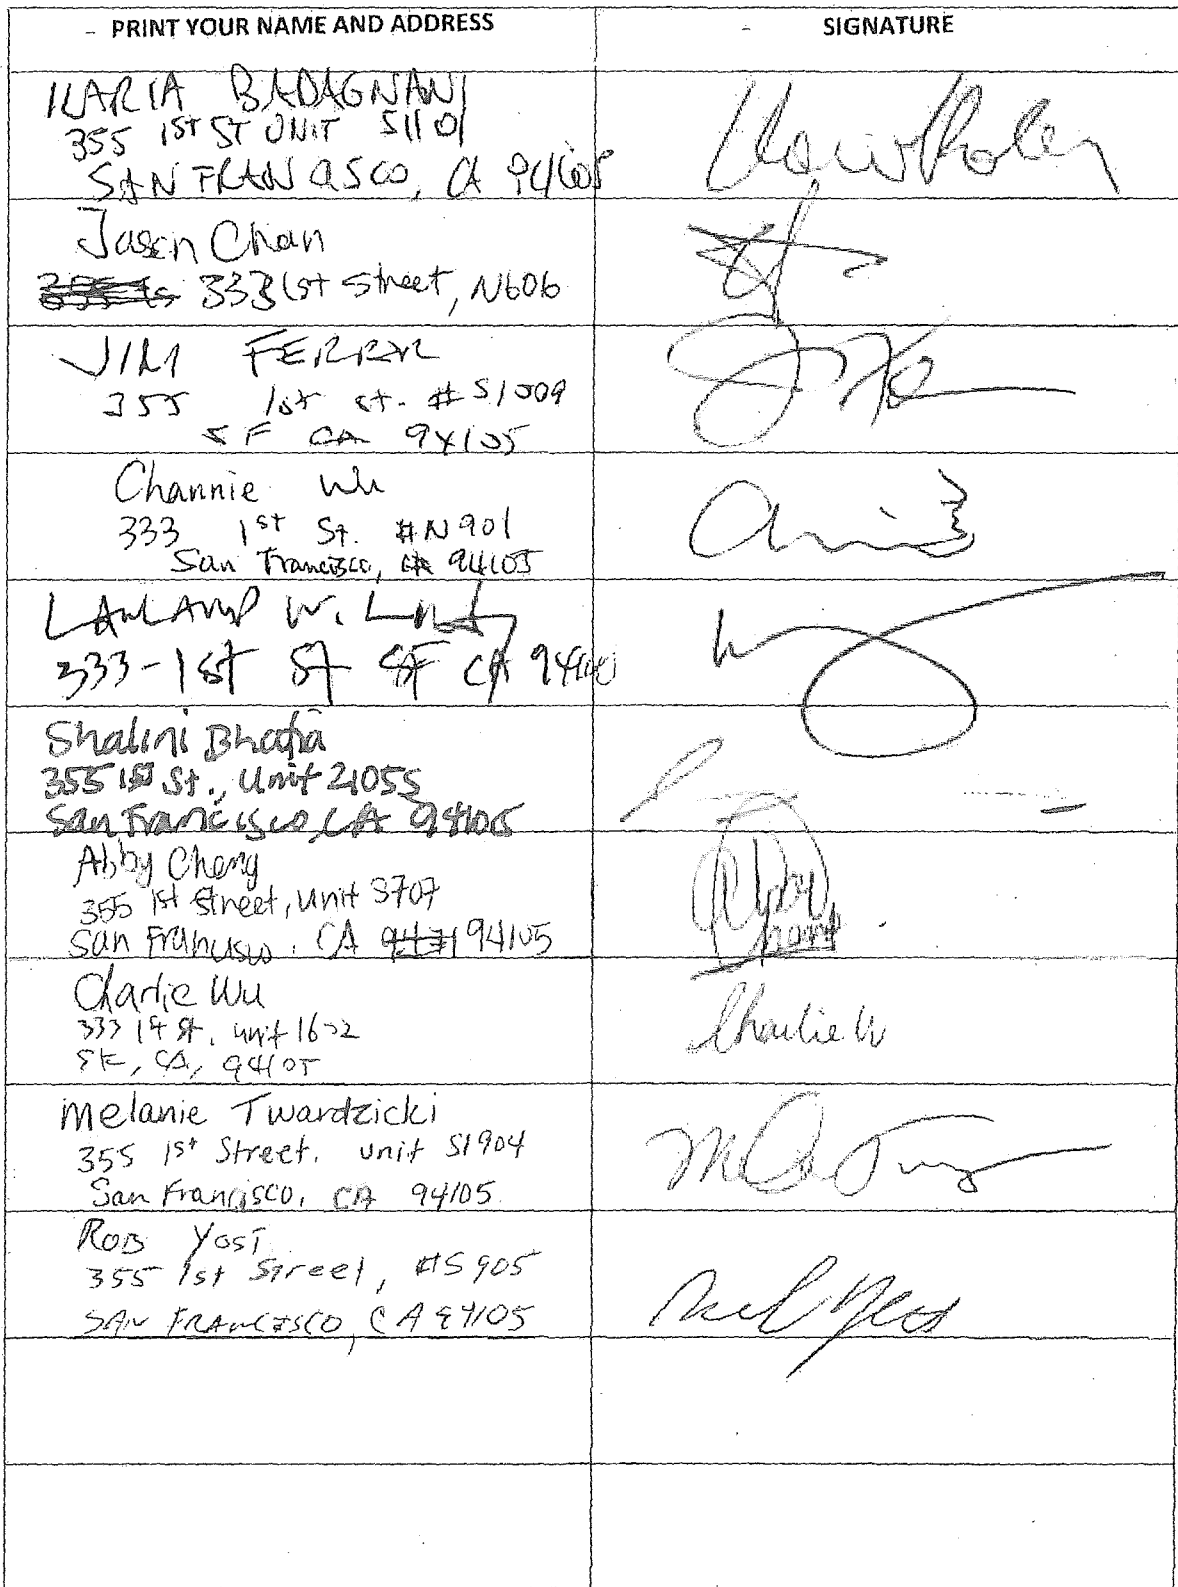 PRINT YOUR NAME AND ADDRESS
SIGNATURE
ILARIA BADAGNANI
355 1ST ST UNIT S1101
SAN FRANCISCO, CA 94105
Jason Chan
333 1st Street, N606
JIM FERRAR
355 1st St. # S1009
SF CA 94105
Channie Wu
333 1st St. #N901
San Francisco, CA 94105
W.
333-1st St SF CA
Shalini Bhatia
355 1st St., Unit 2105S
San Francisco, CA 94105
Abby Cheng
355 1st Street, unit S707
San Francisco, CA 94105
Charlie Wu
333 1st St, unit 1602
SF, CA, 94105
Charlie W
Melanie Twardzicki
355 1st Street. unit S1904
San Francisco, CA 94105
ROB YOST
355 1st Street, #S905
SAN FRANCISCO, CA 94105